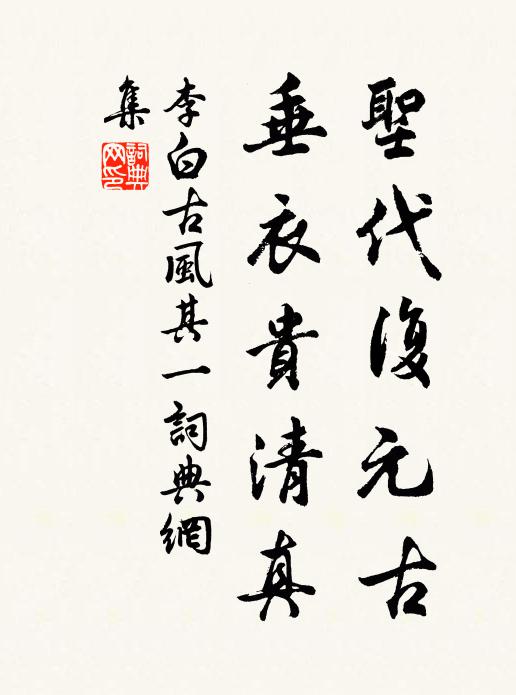 聖代復元古
垂衣貴清真
李白古風其一詞典網
集
詞典网印